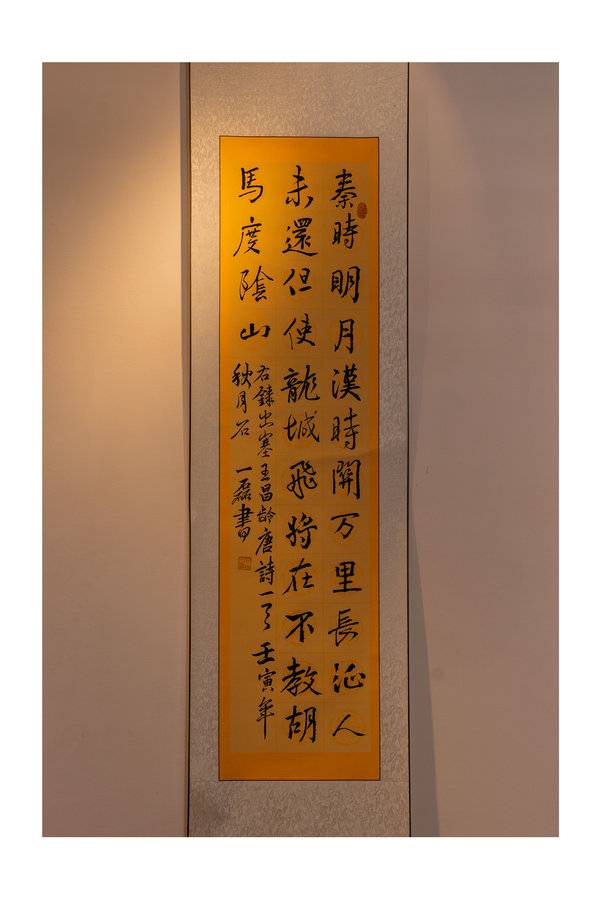 秦時明月漢時關万里長征人
未還但使龍城飛將在不教胡
馬度陰山
右錄出塞王昌齡唐詩一首壬寅年
秋月石一磊書